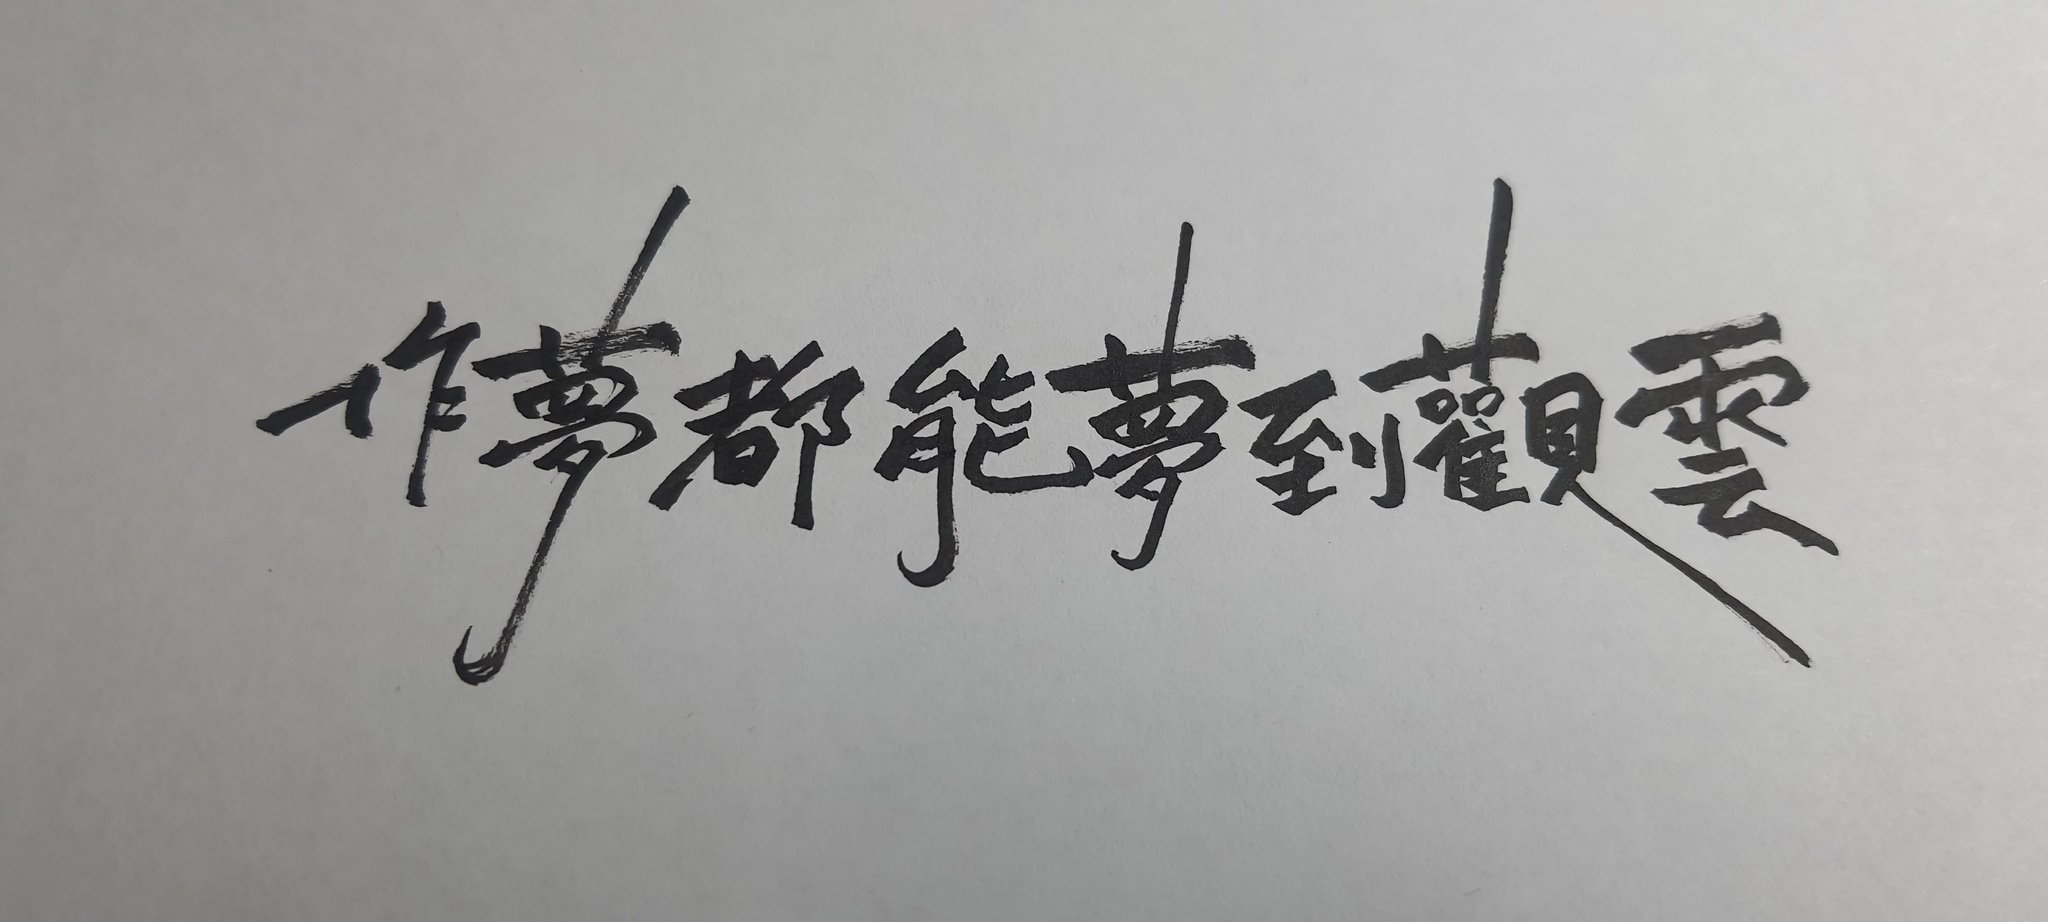 作夢都能夢到觀雲